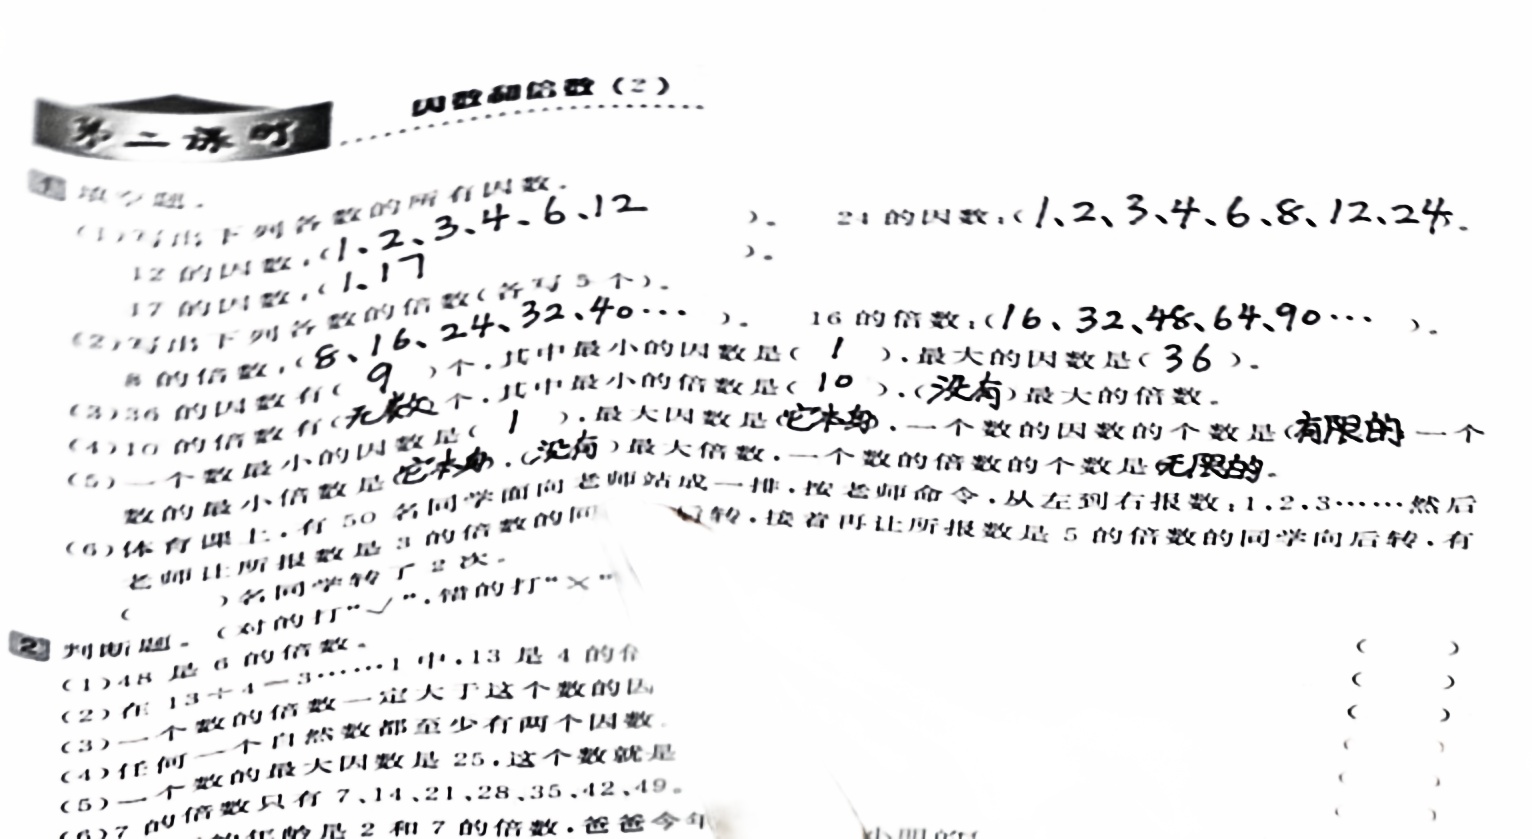 第二课时
因数和倍数（2）
1 填空题。
（1）写出下列各数的所有因数。
12的因数：（1、2、3、4、6、12）。 24的因数：（1、2、3、4、6、8、12、24。
17的因数：（1、17）。
（2）写出下列各数的倍数（各写5个）。
8的倍数：（8、16、24、32、40…）。 16的倍数：（16、32、48、64、90…）。
（3）36的因数有（9）个，其中最小的因数是（1），最大的因数是（36）。
（4）10的倍数有（无数）个，其中最小的倍数是（10），（没有）最大的倍数。
（5）一个数最小的因数是（1），最大因数是（它本身，一个数的因数的个数是（有限的 一个
数的最小倍数是（它本身，（没有）最大倍数，一个数的倍数的个数是无限的。
（6）体育课上，有50名同学面向老师站成一排，按老师命令，从左到右报数：1，2，3……然后
老师让所报数是3的倍数的同 转，接着再让所报数是5的倍数的同学向后转，有
（ ）名同学转了2次。
2 判断题。（对的打“✓”，错的打“×”
（1）48是6的倍数。 （ ）
（2）在13÷4＝3……1中，13是4的 （ ）
（3）一个数的倍数一定大于这个数的因 （ ）
（4）任何一个自然数都至少有两个因数 （ ）
（5）一个数的最大因数是25，这个数就是 （ ）
（6）7的倍数只有7、14、21、28、35、42、49。 （ ）
的年龄是2和7的倍数，爸爸今年